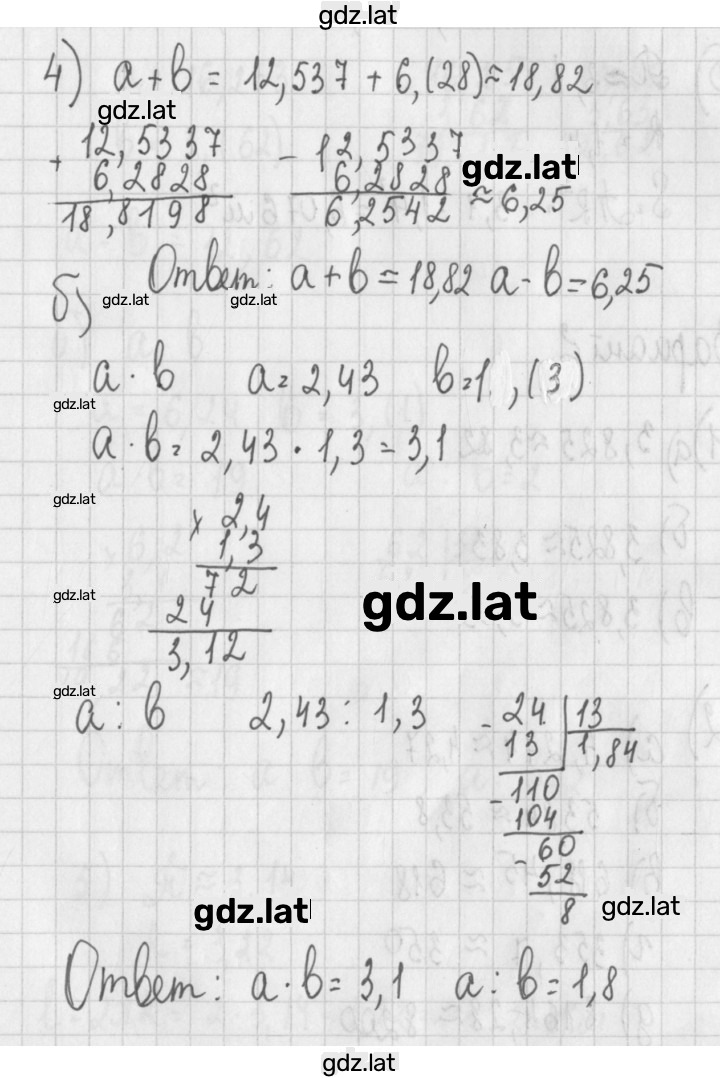 gdz.lat
4) a + b = 12,537 + 6,(28) ≈ 18,82
gdz.lat
+ 12,5337 - 12,5337
gdz.lat
6,2828 6,2828
18,8198 6,2542 ≈ 6,25
Ответ: a + b = 18,82 a - b = 6,25
б) gdz.lat gdz.lat
a · b a = 2,43 b = 1,(3)
gdz.lat
a · b = 2,43 · 1,3 = 3,1
gdz.lat
× 2,4
1,3
gdz.lat
72
gdz.lat
24
3,12
gdz.lat
a : b 2,43 : 1,3 - 24 13
13 1,84
- 110
104
- 60
52
gdz.lat
8 gdz.lat
Ответ: a · b = 3,1 a : b = 1,8
gdz.lat